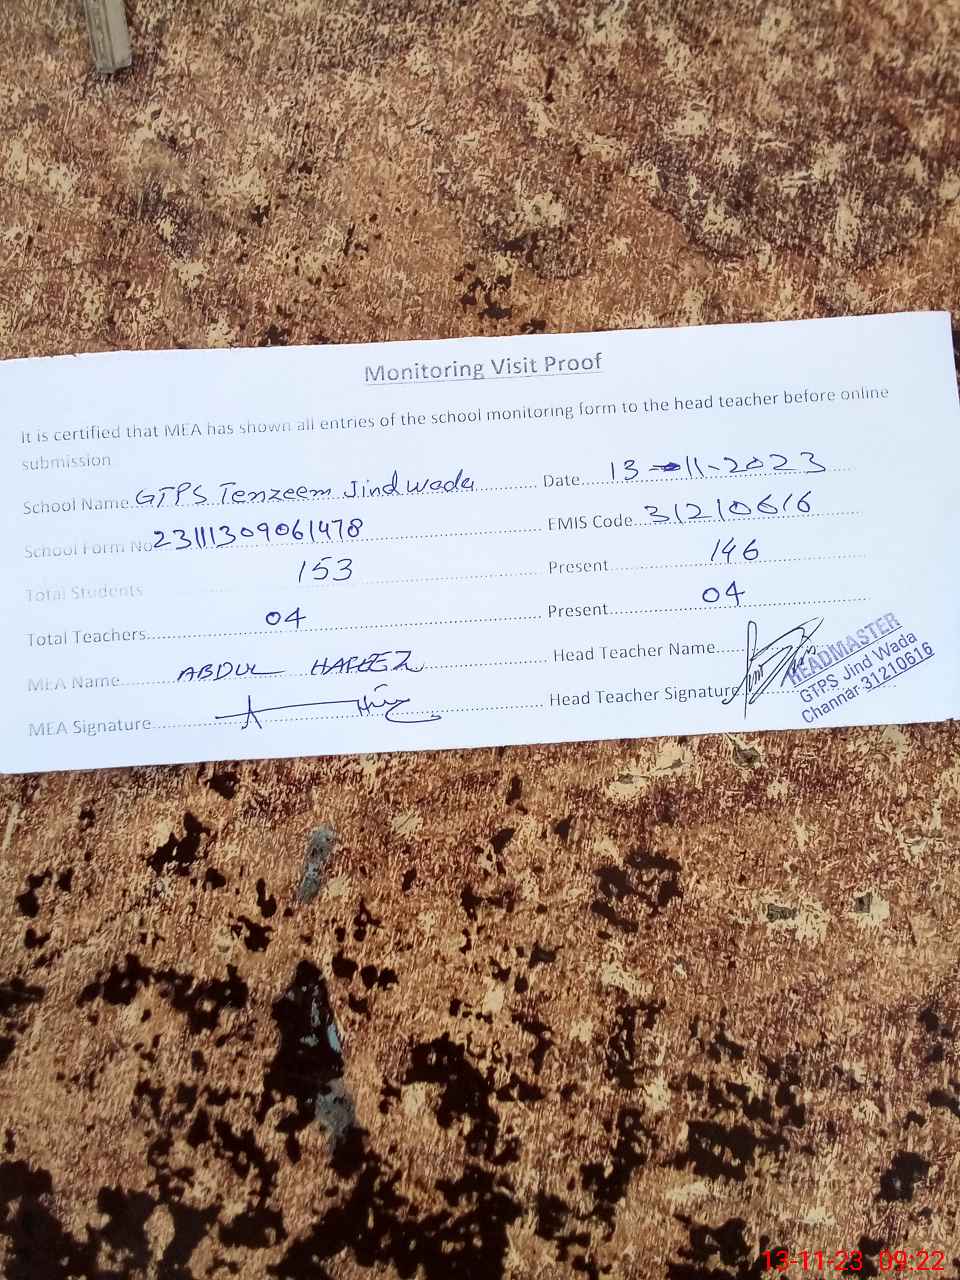 Monitoring Visit Proof
It is certified that MEA has shown all entries of the school monitoring form to the head teacher before online
submission
School Name GTPS Tenzeem Jindwada Date 13-11-2023
School Form No 23111309061478 EMIS Code 31210616
Total Students 153 Present 146
Total Teachers 04 Present 04
MEA Name ABDUL HAFEEZ Head Teacher Name
MEA Signature Head Teacher Signature
HEADMASTER
GTPS Jind Wada
Channar 31210616
13-11-23 09:22